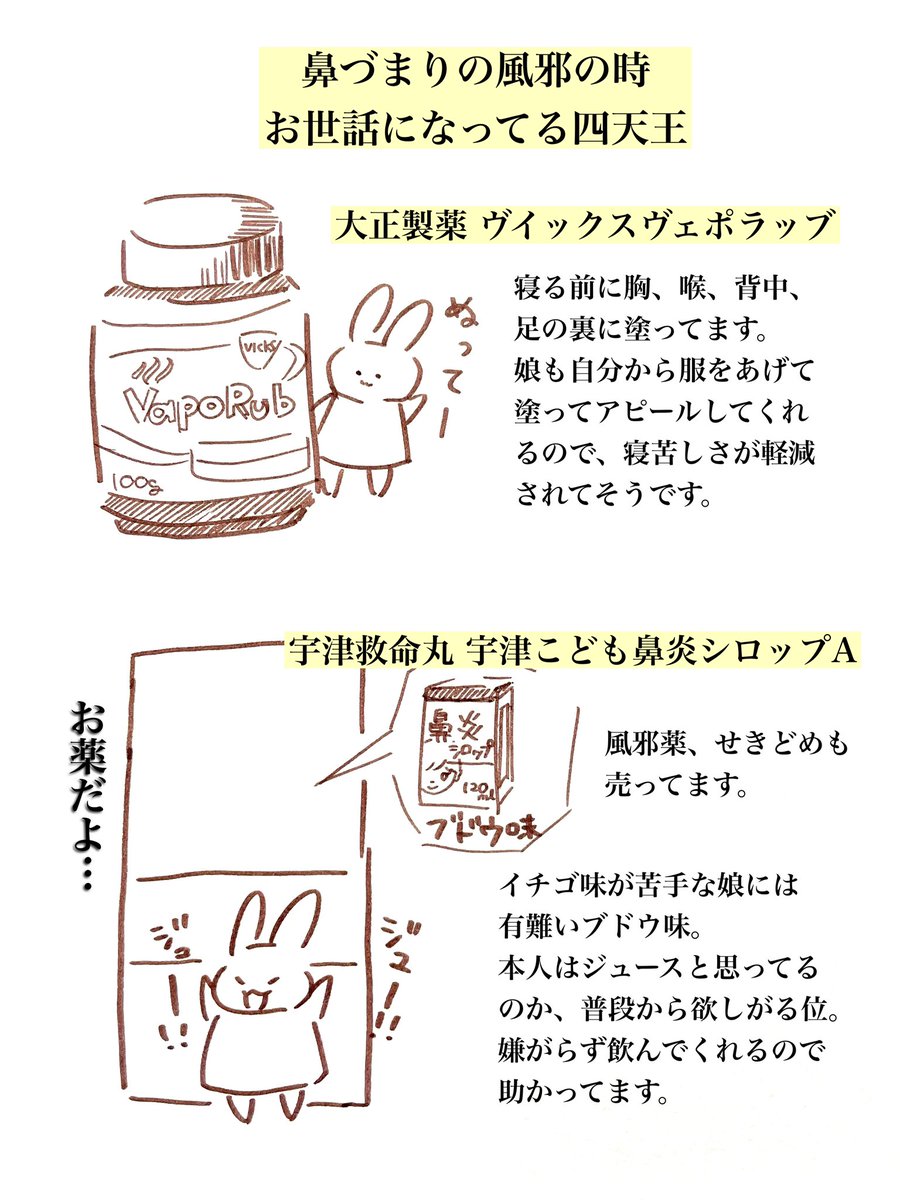 鼻づまりの風邪の時
お世話になってる四天王
大正製薬 ヴイックスヴェポラッブ
寝る前に胸、喉、背中、
足の裏に塗ってます。
娘も自分から服をあげて
塗ってアピールしてくれ
るので、寝苦しさが軽減
されてそうです。
ぬってー
VICKS
VapoRub
100g
宇津救命丸 宇津こども鼻炎シロップA
お薬だよ…
鼻炎
シロップ
120ml
ブドウ味
風邪薬、せきどめも
売ってます。
イチゴ味が苦手な娘には
有難いブドウ味。
本人はジュースと思ってる
のか、普段から欲しがる位。
嫌がらず飲んでくれるので
助かってます。
ジュー!!
ジュー!!